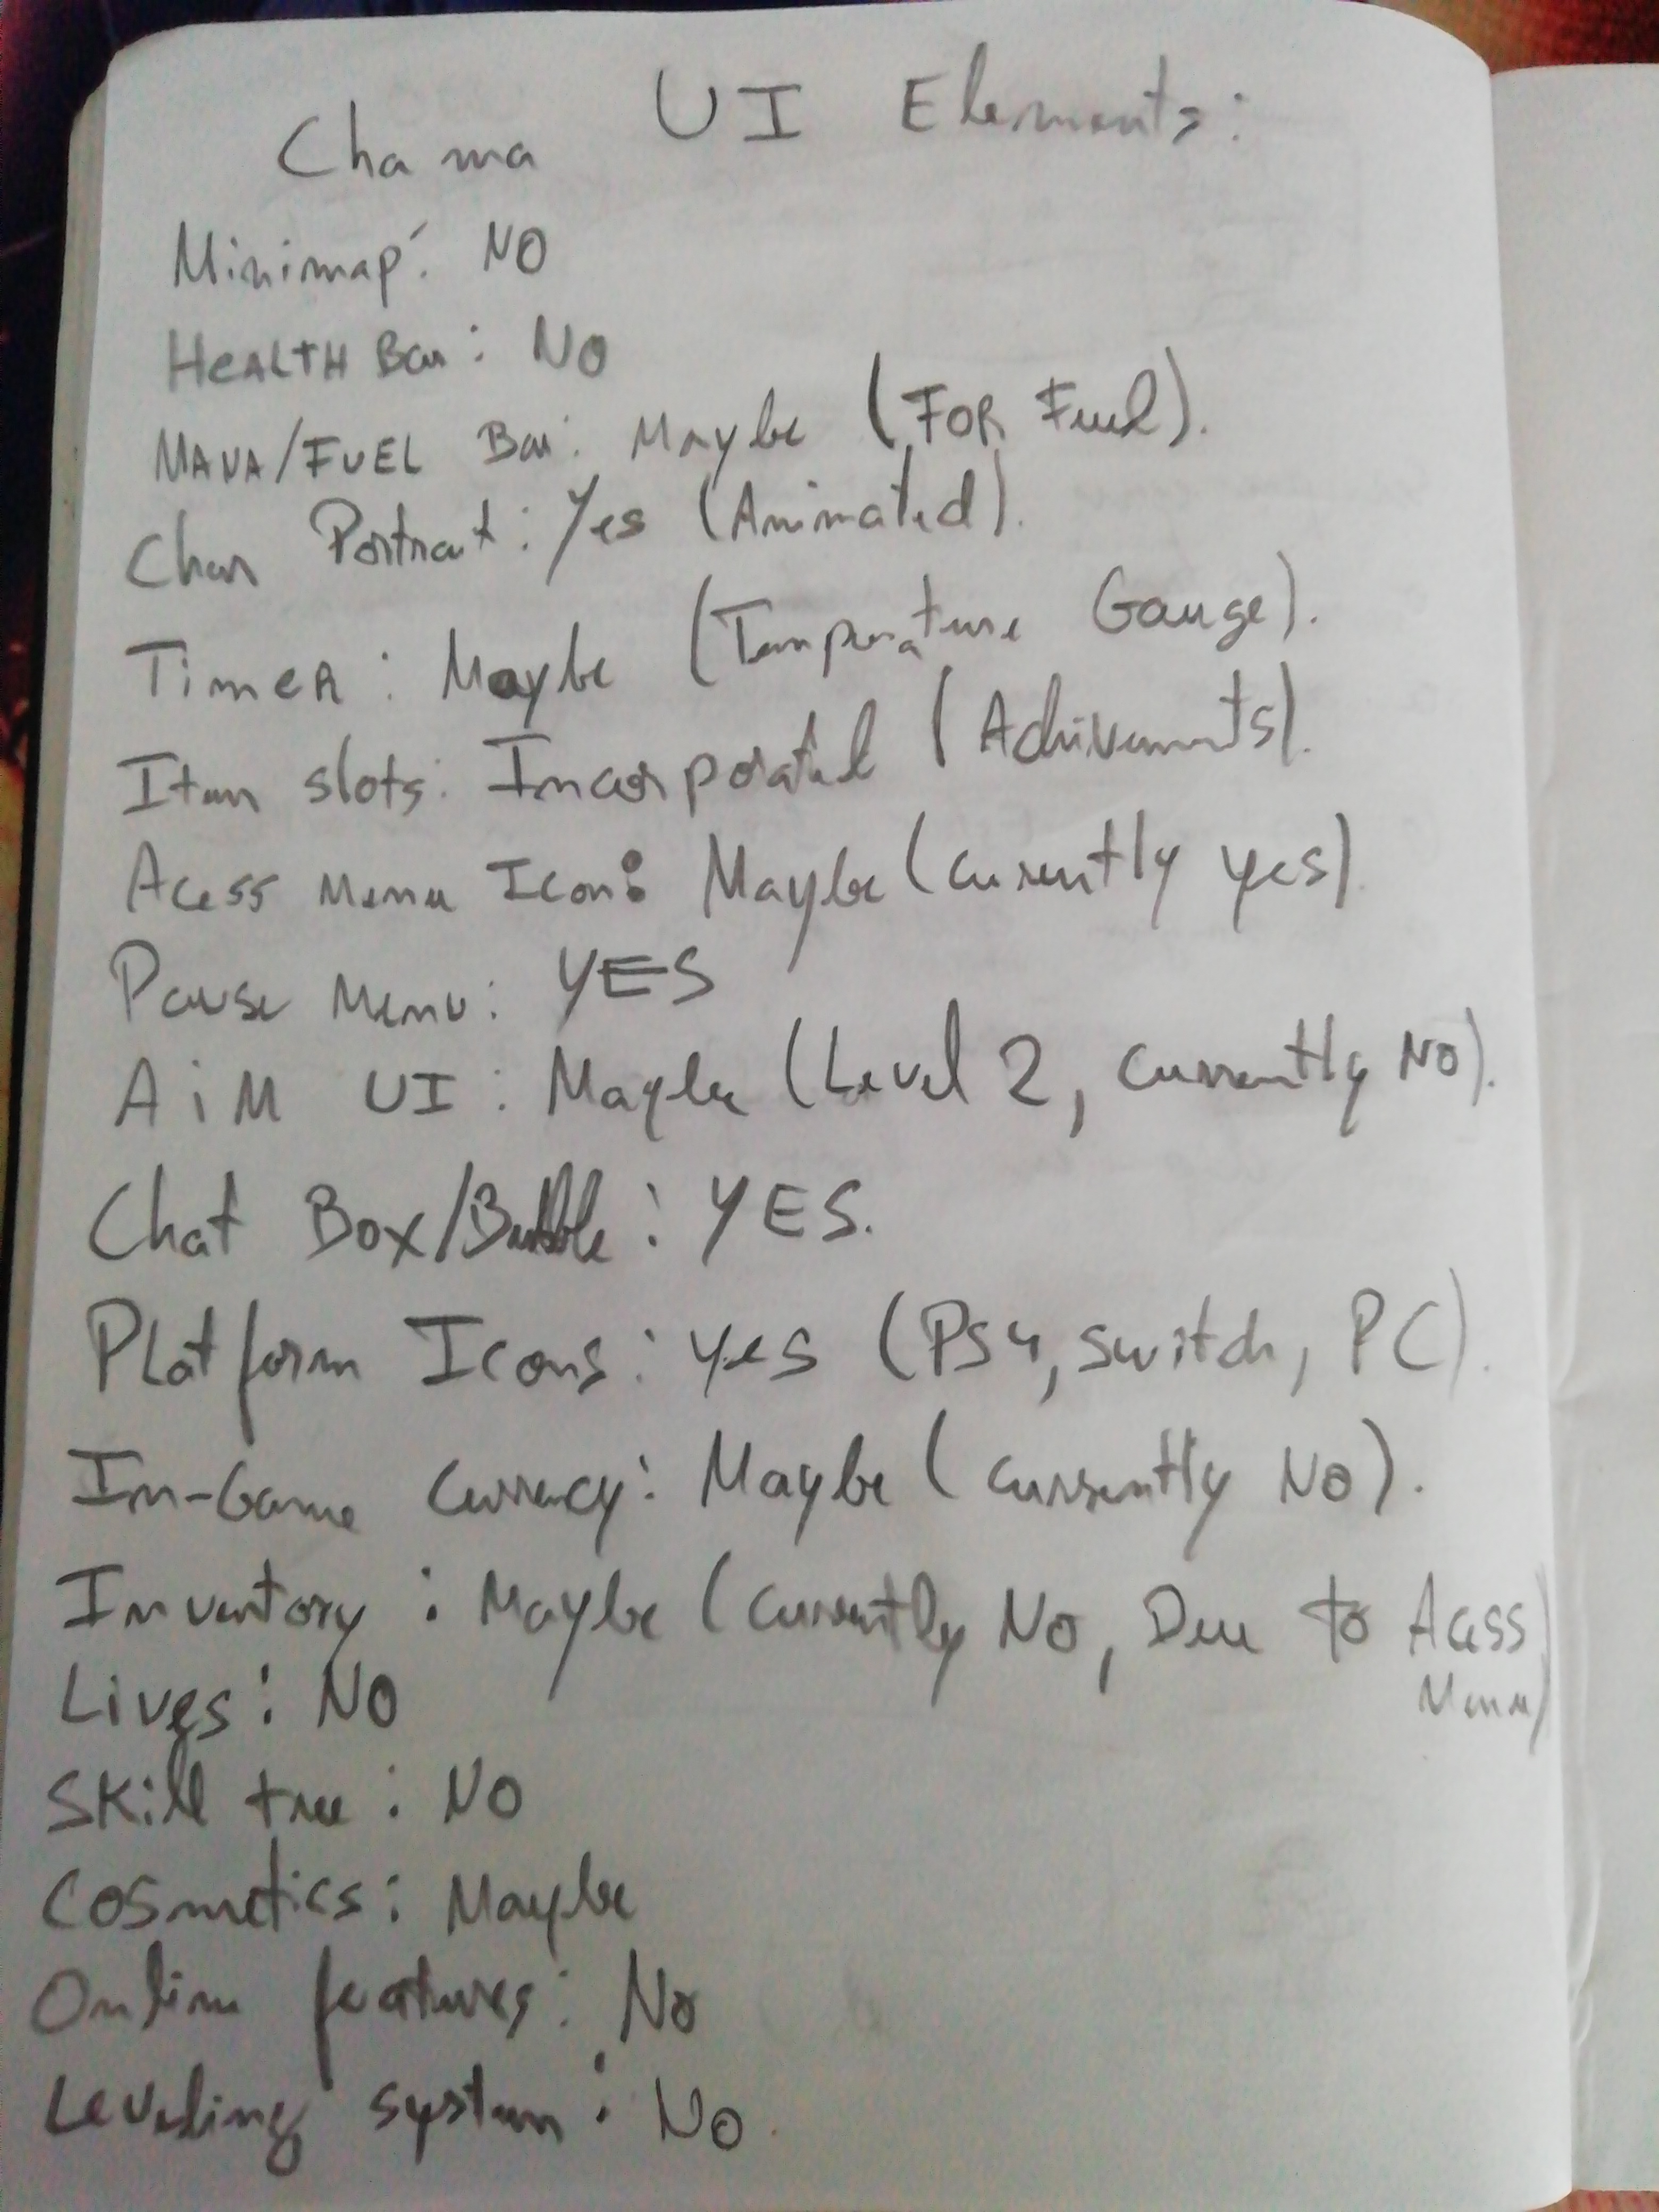 Chama UI Elements:
Minimap: NO
HEALTH Bar: No
MANA/FUEL Bar: Maybe (FOR Fuel).
Char Portrait: Yes (Animated).
Timer: Maybe (Temperature Gauge).
Item slots: Incorporated (Achivements).
Acess Menu Icon: Maybe (currently yes).
Pause Menu: YES
AiM UI: Maybe (Level 2, currently NO).
Chat Box/Bubble: YES.
Platform Icons: yes (PS4, switch, PC).
In-Game Currency: Maybe (currently No).
Inventory: Maybe (currently No, Due to Acess
Menu)
Lives: NO
Skill tree: No
Cosmetics: Maybe
Online features: No
Leveling system: No.